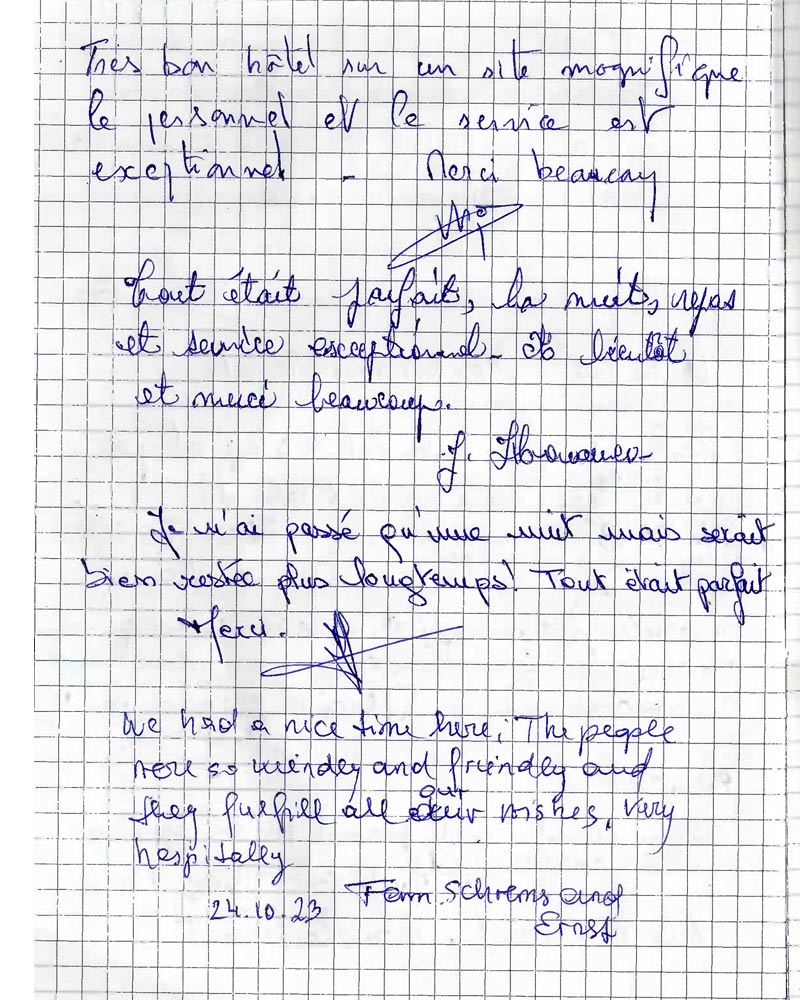 Très bon hôtel sur un site magnifique
le personnel et le service est
exceptionnel - Merci beaucoup
Tout était parfait, la nuit, repas
et service exceptionnel - A bientôt
et merci beaucoup.
J.
Je n'ai passé qu'une nuit mais serait
bien restée plus longtemps! Tout était parfait
Merci.
We had a nice time here; The people
here so and friendly and
they fulfill all our wishes, very
hospitally
24.10.23 Fam. Schrems and
Ernst